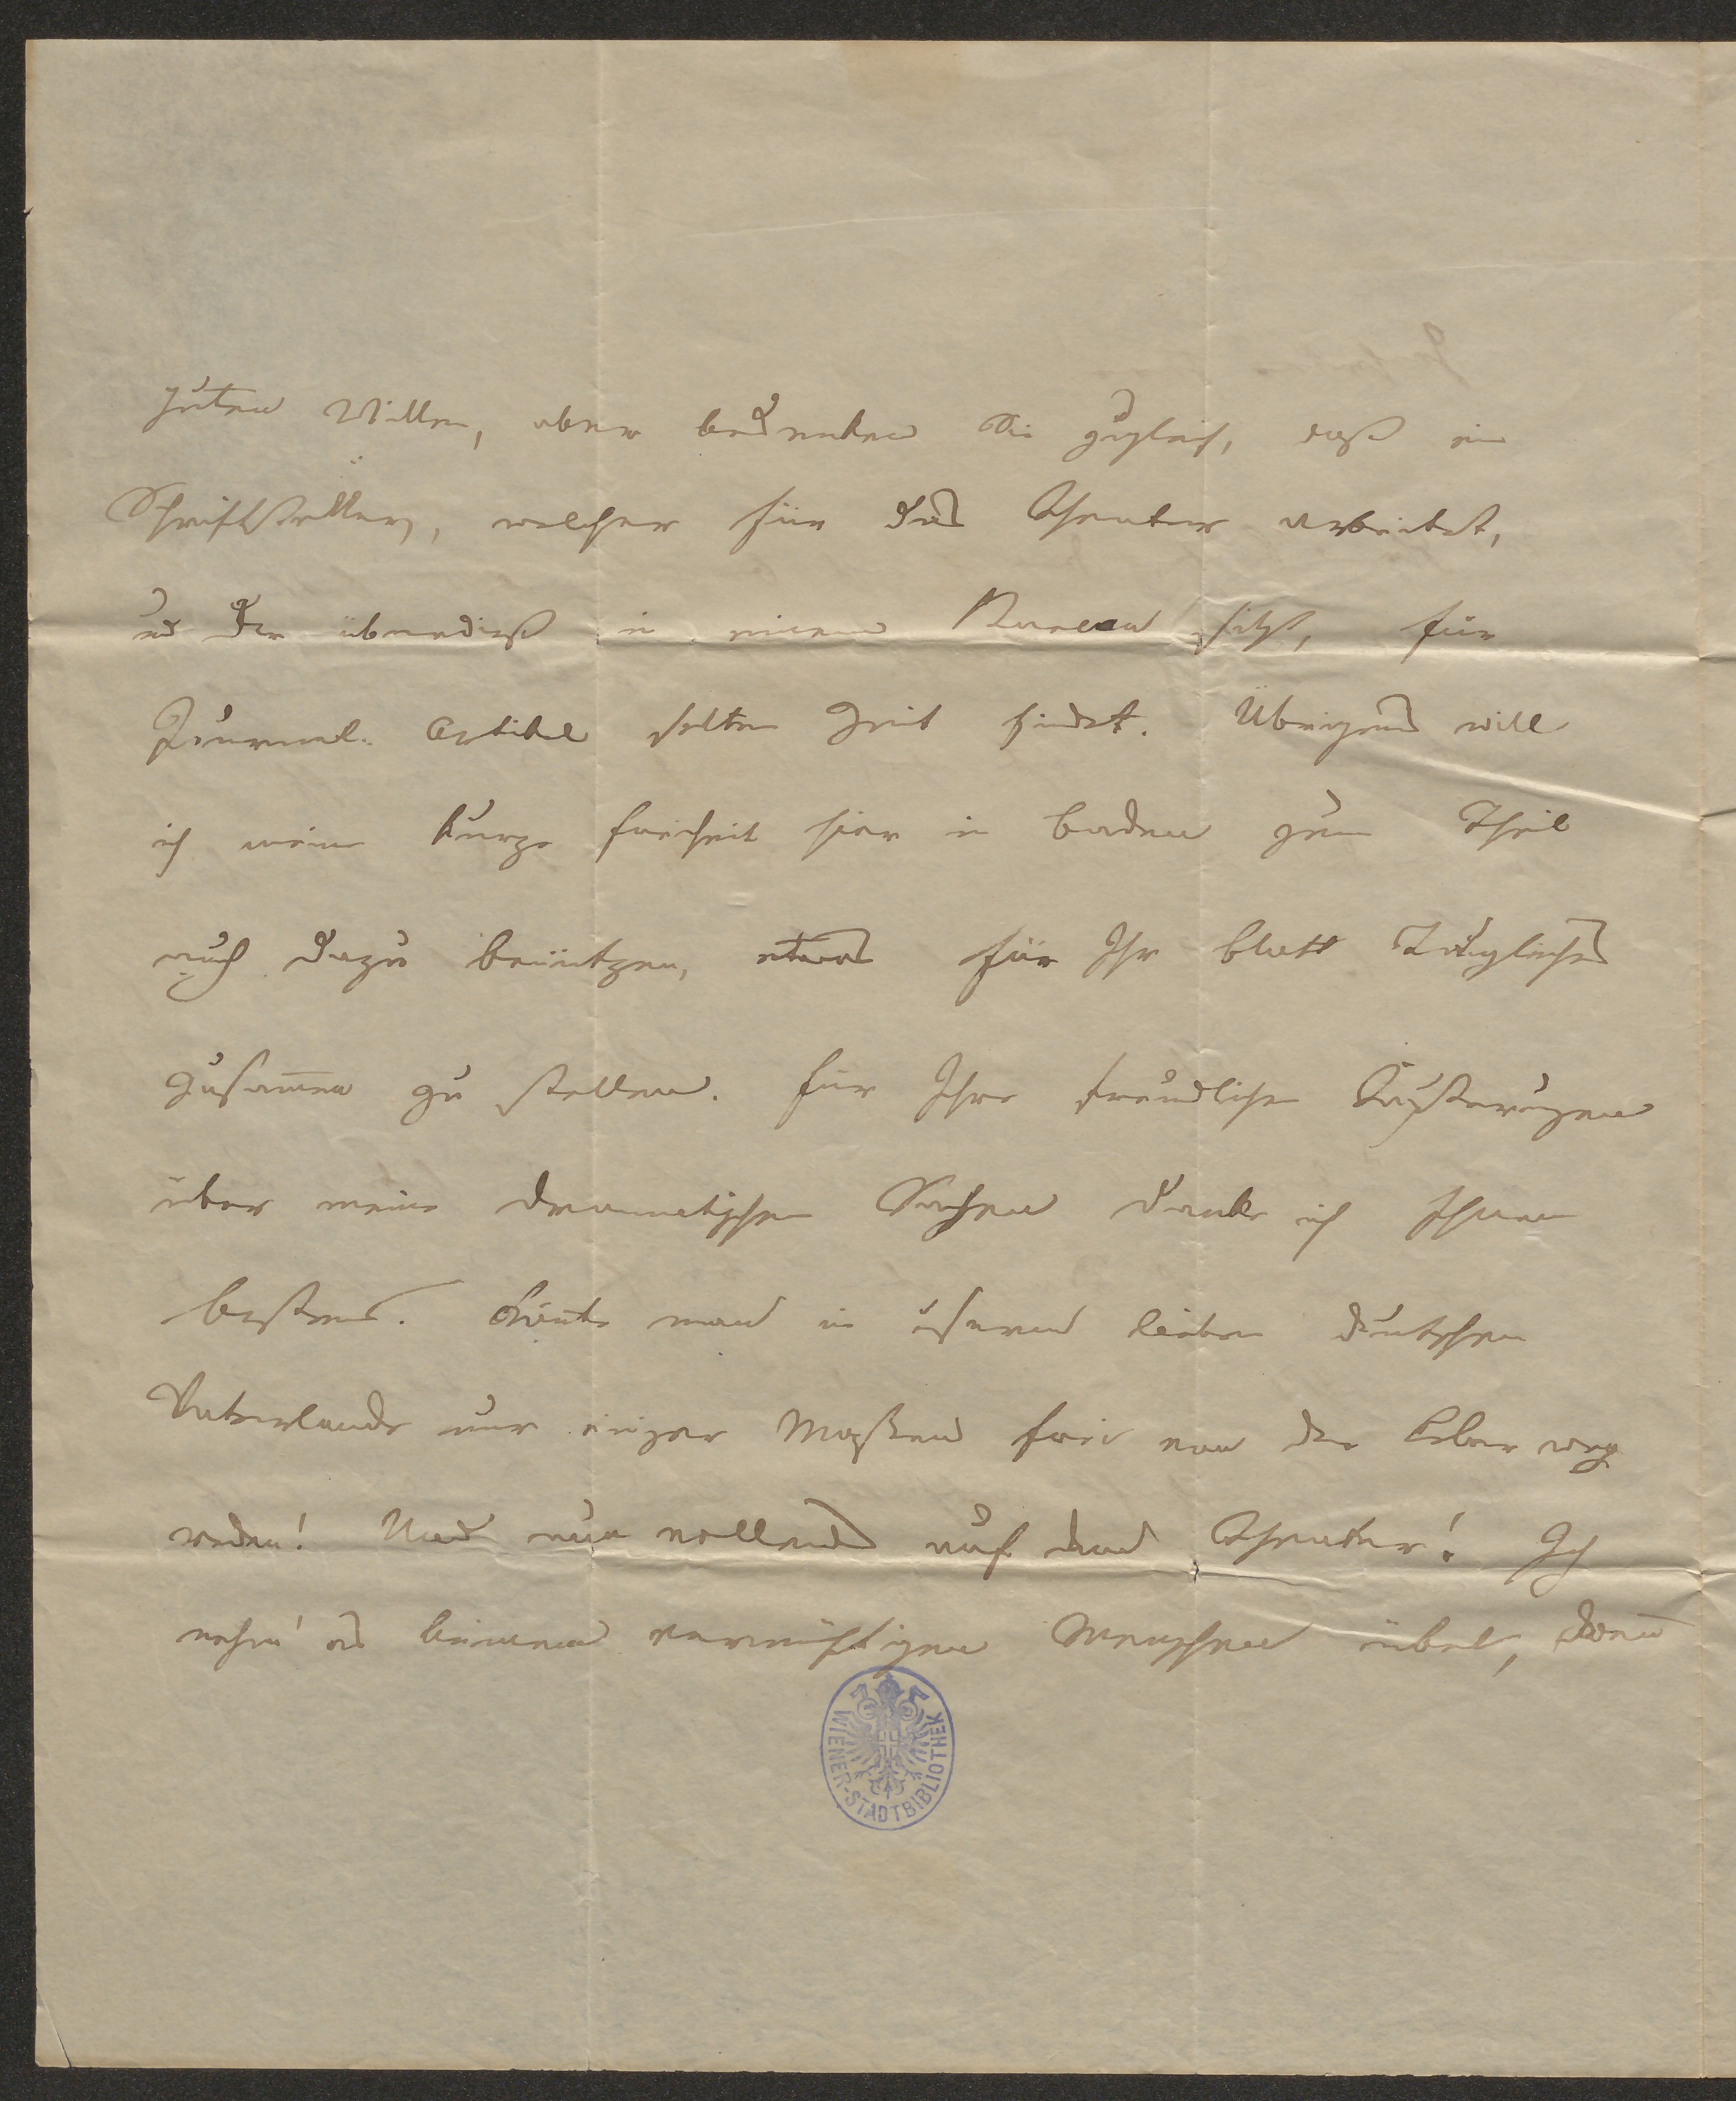 guten Willen, aber bedenken Sie zugleich, daß ein
Schriftsteller, welcher für das Theater arbeitet,
und der überdieß in einem Bureau sitzt, für
Journal-Artikel selten Zeit findet. Übrigens will
ich meine kurze Freiheit hier in Baden zum Theil
auch dazu benützen, etwas für Ihr Blatt Taugliches
zusam̅en zu stellen. Für Ihre freundlichen Äußerungen
über meine dramatischen Sachen danke ich Ihnen
bestens. Kön̅te man in unserem lieben deutschen
Vaterlande nur einiger Maßen frei von der Leber weg
reden! Und nun vollends auf dem Theater! Ich
nehm' es keinem vernünftigen Menschen übel, wen̅
WIENER-STADTBIBLIOTHEK